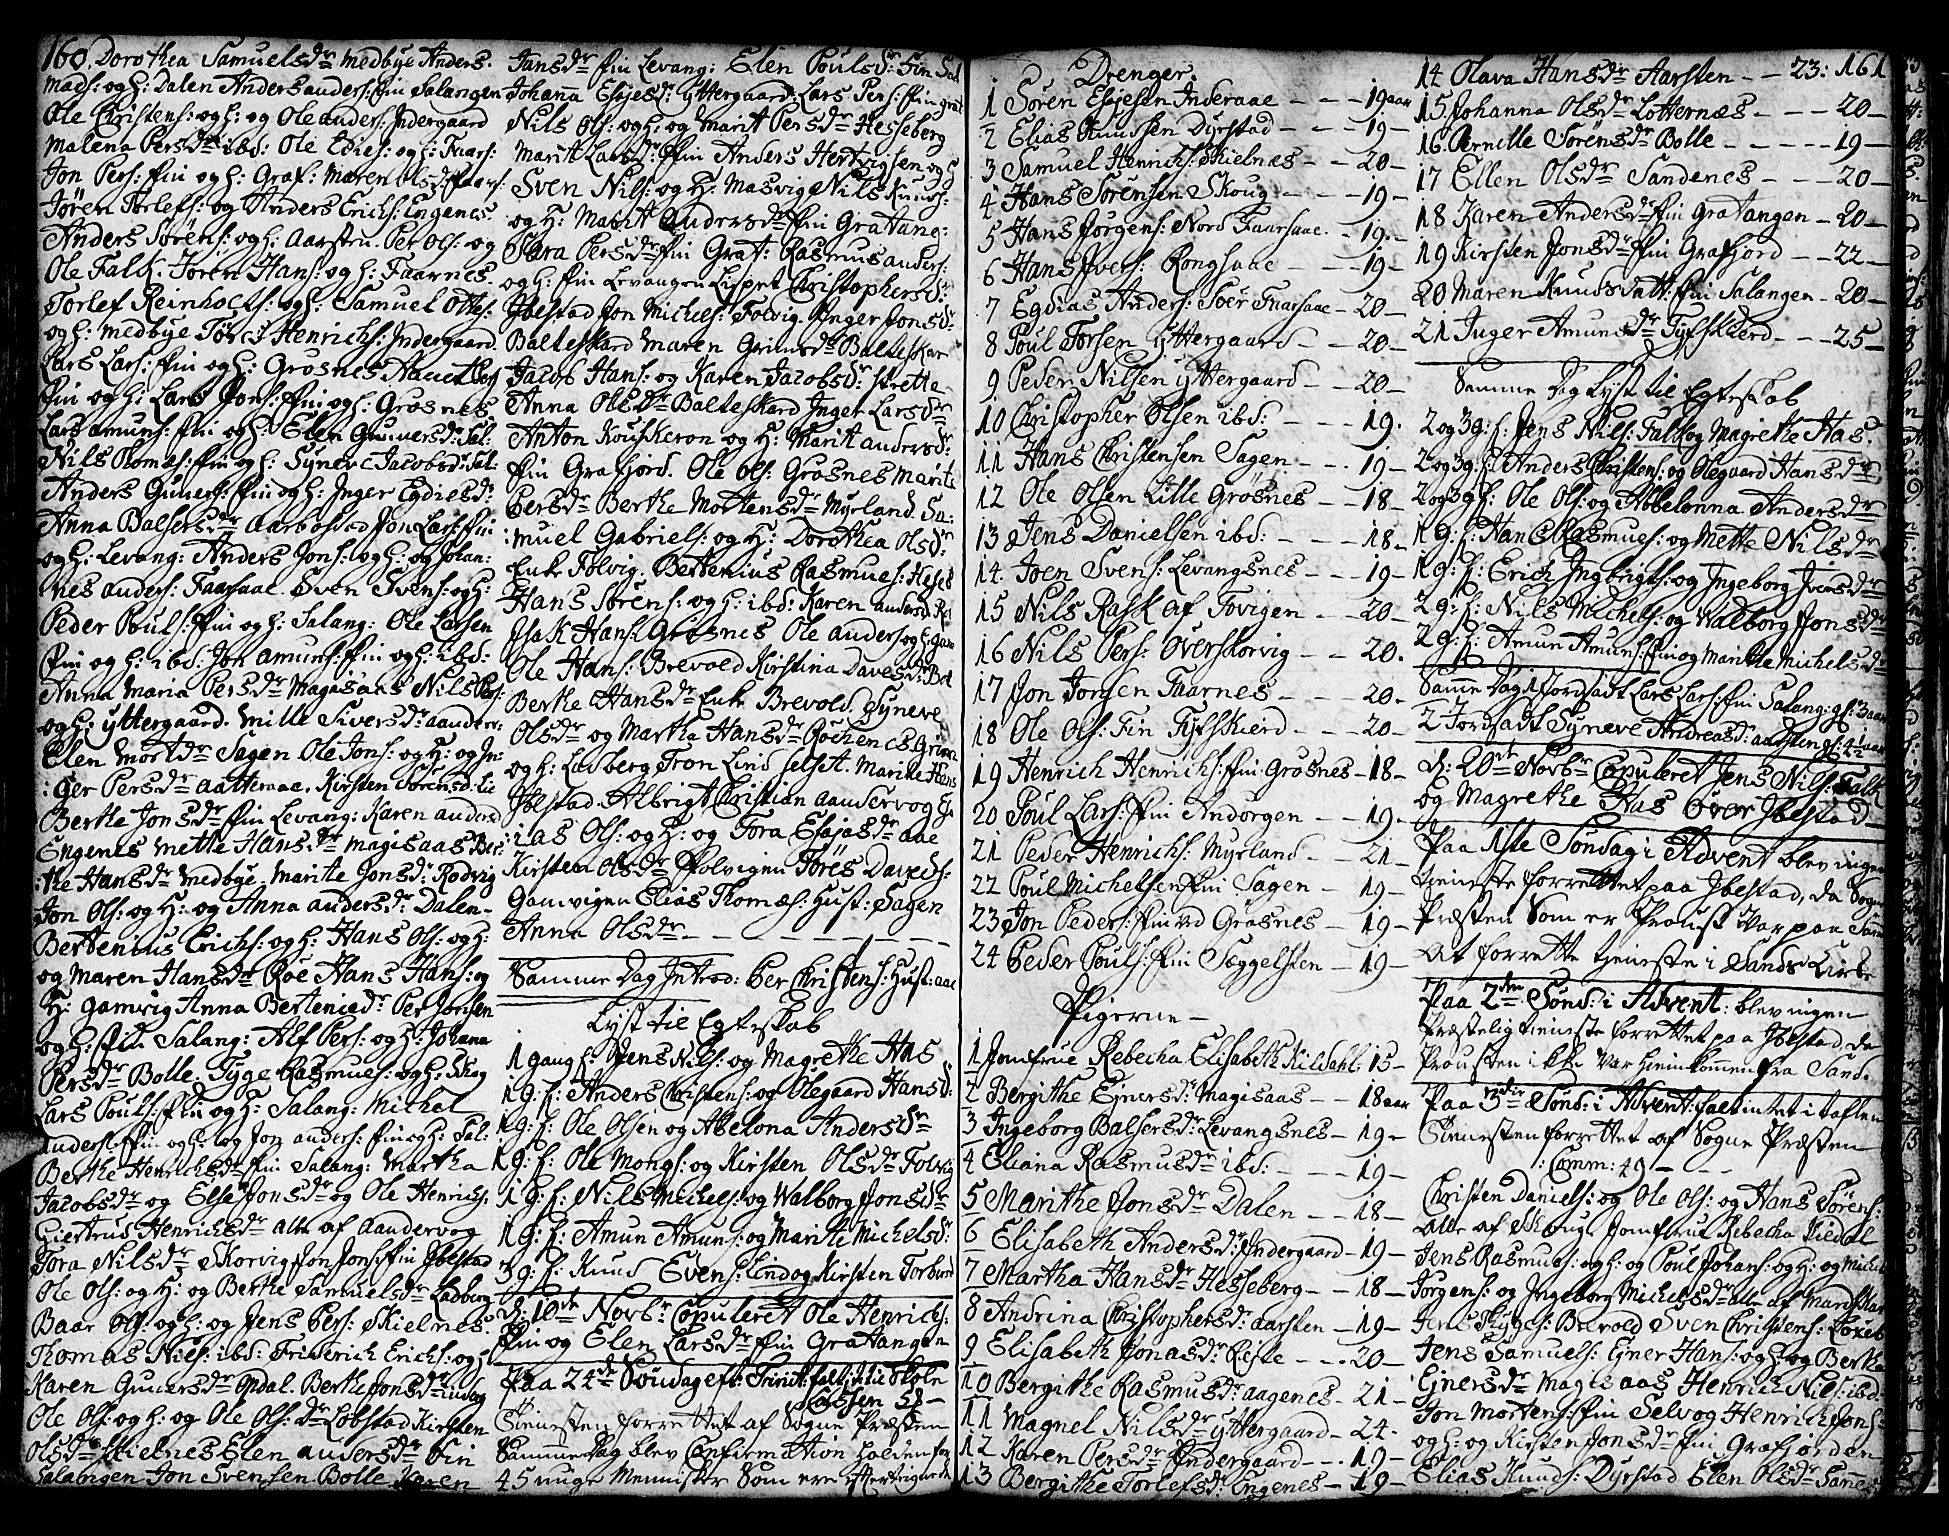 160. Dorothea Samuelsdr Medbye Anders
Mads: og H: Dalen Anders anders: fin Salangen
Ole Christens: og H: og Ole anders: Indergaard
Malena Persdr ibd: Ole Edies: og H: Faars:
Jon Pers: fin og H: Graf: Maren olsdr Faars:
Jören Torlefs: og Anders Erichs: Engenes.
Anders Sörens: og H: Aarsten. Per Ols: og
Ole Falk. Jören Hans: og H: Faarnes.
Torlef Reinholts: og H: Samuel Otts:
og H: Medbye Henrichs: Indergaard.
Lars Lars: fin og H: Grosnes
fin og H: Lars Jons: fin og H: Grosnes
Lars amuns: fin og H: Elen Gunersdr Sal:
Nils Tomæs: fin og H: Syneve Jacobsdr Sal:
Anders Guners: fin og H: Inger Egdiesdr
Anna Balsersdr Aarbostad Jon Lars: fin
og H: Levang: Anders Jons: og H: og Johan:
:nes anders: Faarsaae. Sven Svens: og H:
Peder Pouls: fin og H: Salang: Ole Larsen
fin og H: ibd: Jon amuns: fin og H: ibd:
Anna Maria Persdr Magasaas Nils Pers:
og H: yttergaard. Mille Siversdr aander:
Elen Mortdr Sagen Ole Jons: og H: og In:
:ger Persdr aatteraae. Kirsten Sörensd: Lie
Berthe Jonsdr fin Levang: Karen andersd
Engenes Mette Hansdr Magisaas Ber:
:the Hansdr Medbye. Marite Jonsdr Rodvig
Jon Ols: og H: og Anna andersdr Dalen-
Bertenius Erichs: og H: Hans Ols: og H:
og Maren Hansdr Roe Hans Hans: og
H: Gamvig Anna Berteniedr Per Jonsen
og H: fin Salang: Alf Pers: og H: Johana
Persdr Bolle. Tyge Rasmus: og H: Skog
Lars Pouls: fin og H: Salang: Michel
anders: fin og H: og Jon anders: fin og H: Sal:
Berthe Henrichsdr fin Salang: Martha
Jacobsdr og Else Jonsdr og Ole Henrichs:
Giertrud Henrichsdr alle af aandervog
Tora Nilsdr Skorvig Jon Jons: fin Ibestad
Ole Ols: og H: og Berthe Samuelsdr Ladberg
Baar Ols: og H: og Jens Pers: Skielnes.
Thomas Nils: ibd: Friderich Erichs: og H
Karen Gunersdr Opdal. Berthe Jonsdr
Ole Ols: og H: og Ole Ols: dr Lobstad Kirsten
Olsdr Skielnes Elen andersdr Fin
Salangen Jon Svensen Bolle Karen
Jansdr fin Levang: Elen Poulsdr Fin Sal
Johana Esjesd: yttergaard Lars Pers: fin grat
Nils Ols: og H: og Marit Persdr Hesseberg
Marit Larsdr fin Anders Hertvigsen og H
Sven Nils: og H: Masvig Nils Knuds:
og H: Marit Andersdr fin Gratang:
Sara Persdr fin Grat: Rasmus anders:
og H: fin Levangen Lispet Christophersdr:
Ibestad Jon Michels: Folvig. Inger Jonsdr
Balteskard Maren Grimsdr Balteskar
Jacob Hans: og Karen Jacobsdr Strette
Anna Olsdr Balteskard Inger Larsdr
Anton Kouskeron og H: Marit andersdr:
fin Grafjord. Ole Ols: Grosnes Marite
Persdr Berthe Mortensdr Myrland Sa:
:muel Gabriels: og H: Dorothea Olsdr
Enke Folvig. Bertenius Rasmus: Hesse
Hans Sörens: og H: ibd: Karen andersd: Rol
Isak Hans: Grosnes Ole anders og H: gam
Ole Hans: Brevold Kirstina Davesdr: Bol
Berthe Hansdr Enke Brevold. Syneve
Olsdr og Martha Hansdr Rochenes Grim
og H: Ladberg Tron Lind selst. Marite Hans
Ibestad Albrigt Christian aandervog El:
:ias Ols: og H: og Tora Esajasdr aae
Kirsten Olsdr Folvigen Töres Davids:
Gamvigen Elias Thomæs: Hust: Sagen
Anna Olsdr
Samme Dag Introd: Per Christens: Hust: aae
Lyst til Egteskab
1 gang f: Jens Nils: og Magrethe Has
1 g: f: Anders Christens: og Olegaard Hansd:
1 g: f: Ole Olsen og Abelona Andersdr
1 g: f: Ole Mongs: og Kirsten Olsdr Folvig
1 g: f: Nils Michels: og Walborg Jonsdr
1 g: f: Amun Amuns: og Marite Michelsdr
3 g: f: Knud Evens: Lind og Kirsten Torbersd
d: 10de Novbr Copuleret Ole Henrichs:
fin og Elen Larsdr fin Gratangen
Paa 24de Söndag eft: Trinit: falt
58 -
Tienesten forrettet af Sogne Præsten
Samme Dag blev Confirmation holden for
45 unge Mennisker Som ere efterskrevne
Drenger.
1 Sören Esjesen Inderaae - - - 19 aar
2 Elias Knudsen Dyrstad - - - 19 -
3 Samuel Henrichs: Skielnæs - - 20 -
4 Hans Sörensen Skoug - - - 19 -
5 Hans Jörgens: Nord Faarsaae - 19 -
6 Hans Ivers: Rongsaae - - - 19 -
7 Egdias Anders: Soer Faarsaae - 20 -
8 Poul Torsen yttergaard - - 20 -
9 Peder Nilsen yttergaard - - 20 -
10 Christopher Olsen ibd: - - - 19.
11 Hans Christensen Sagen - - 19 -
12 Ole Olsen Lille Grösnes - - 18 -
13 Jens Danielsen ibd: - - - 18 -
14. Joen Svens: Levangsnes - - 19 -
15 Nils Rask af Fovigen - - 20 -
16 Nils Pers: Overskorvig - - 20.
17 Jon Jonsen Faarnes - - - 20 -
18 Ole Ols: Fin Fyfskierd - - 20 -
19 Henrich Henrichs: fin Grosnes - 18 -
20 Poul Lars: fin Andörgen - - 19 -
21 Peder Henrichs: Myrland - - 21 -
22 Poul Michelsen fin Sagen - 19 -
23 Jon Peders: fin ved Grasnes - 19 -
24 Peder Pouls: fin Söggelsten - 19 -
Pigerne -
1 Jomfrue Rebecha Elisabeth Kildahl: 15 -
2 Bergithe Ejnersdr Magisaas - - 18 aar
3 Ingeborg Balsersdr Levangsnes - 19 -
4 Eliana Rasmusdr ibd: - - - 19 -
5 Marithe Jonsdr Dalen - - 18 -
6 Elisabeth Andersdr Indergaard - 19 -
7 Martha Hansdr Hesseberg - - 18 -
8 Andrina Christophersdr: aarsten - 19 -
9 Elisabeth Jonasdr: Refte - - - 20 -
10 Bergithe Rasmusdr: aagenes - 21 -
11 Magnel Nilsdr yttergaard - 24 -
12 Karen Persdr Indergaard - - 19 -
13 Bergithe Torlefsdr: Engenes - 19 -
14 Olava Hansdr Aarsten - - 23: 161
15. Johanna Olsdr Lotternæs - - - 20 -
16. Pernille Sörensdr Bolle - - - - 19 -
17 Ellen Olsdr Sandenes - - - 20 -
18 Karen Andersdr fin Gratangen - 20 -
19 Kirsten Jonsdr fin Grafjord - - 22 -
20 Maren Knudsdatt: fin Salangen - 20 -
21 Inger Amunsdr Fyfskierd - - - 25 -
Samme Dag Lyst til Egteskab
2 og 3 g: f: Jens Nils: Falk og Magrethe Has.
2 og 3 g: f: Anders Christens: og Olegaard Hansdr
2 og 3 g f: Ole Ols: og Abbelonna Andersdr
1 g: f: Hans Rasmus: og Mette Nilsdr
1 g: f: Erich Ingbrigts: og Ingeborg Ivensdr
2 g: f: Nils Michels: og Walborg Jonsdr
2 g: f: Amun Amuns: fin og Marithe Michelsdr
Samme Dag 1 Jordfadt Lars Lars: fin Salang: gl: 3 aar
2 Jordfadt Syneve Andreasdr: aarsten gl: 4 1/2 aar
d: 20de Novbr Copuleret Jens Nils: Falk
og Magrethe Has over Ibestad
Paa 1ste Söndag i Advent blev ingen
tieneste forrettet paa Ibestad, da Sogne
Præsten Som er Proust Var paa Sand
At forrette tieneste i Sands Kirke
Paa 2den Sönd: i Advent: blev ingen
Præstelig tieneste forrettet paa Ibestad da
Prousten ikke Var hiemkommen fra Sand.
Paa 3die Sönd: i Advent: falt intet i taflen
Tienesten forrettet af Sogne Præsten
: Comm: 49 -
Christen Daniels: og Ole Ols: og Hans Sörens:
alle af Skoug Jomfrue Rebecha Kiedal
Jens Rasmus: og H: og Poul Johans: og H: og Michel
Jörgens: og Ingeborg Michelsdr alle af Mariskar
Jens Skyttes: Brevold Sven Christens: Foxeb
Jens Samuels: Ejner Hans: og H: og Berthe
Ejnersdr Magisaas Henrich Nils: ibd:
Jon Mortens: fin Selvog Henrich Jons:
og H: og Kirsten Jonsdr fin Grafjorden
Elias Knuds: Dyrstad Elen Olsdr Sannes